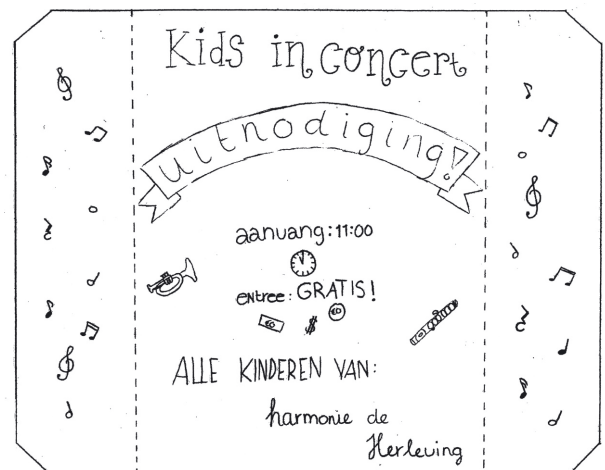 Kids in concert
uitnodiging!
aanvang: 11:00
entree: GRATIS!
€0 $ €0
ALLE KINDEREN VAN:
harmonie de
Herleving